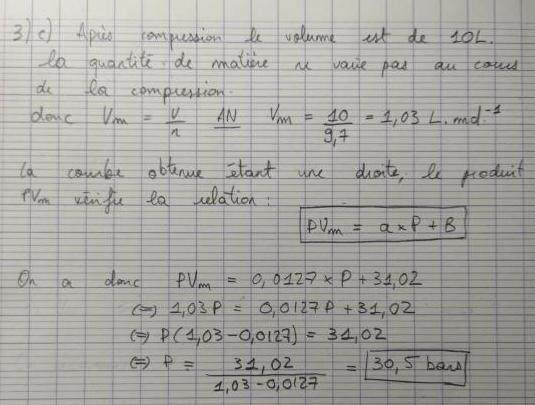 3) c) Après compression le volume est de 10L.
la quantité de matière ne varie pas au cours
de la compression.
donc Vm = V/n AN Vm = 10/9,7 = 1,03 L.mol⁻¹
la courbe obtenue étant une droite, le produit
PVm vérifie la relation :
PVm = a x P + B
On a donc PVm = 0,0127 x P + 31,02
(=) 1,03P = 0,0127P + 31,02
(=) P(1,03-0,0127) = 31,02
(=) P = 31,02/1,03-0,0127 = 30,5 bars